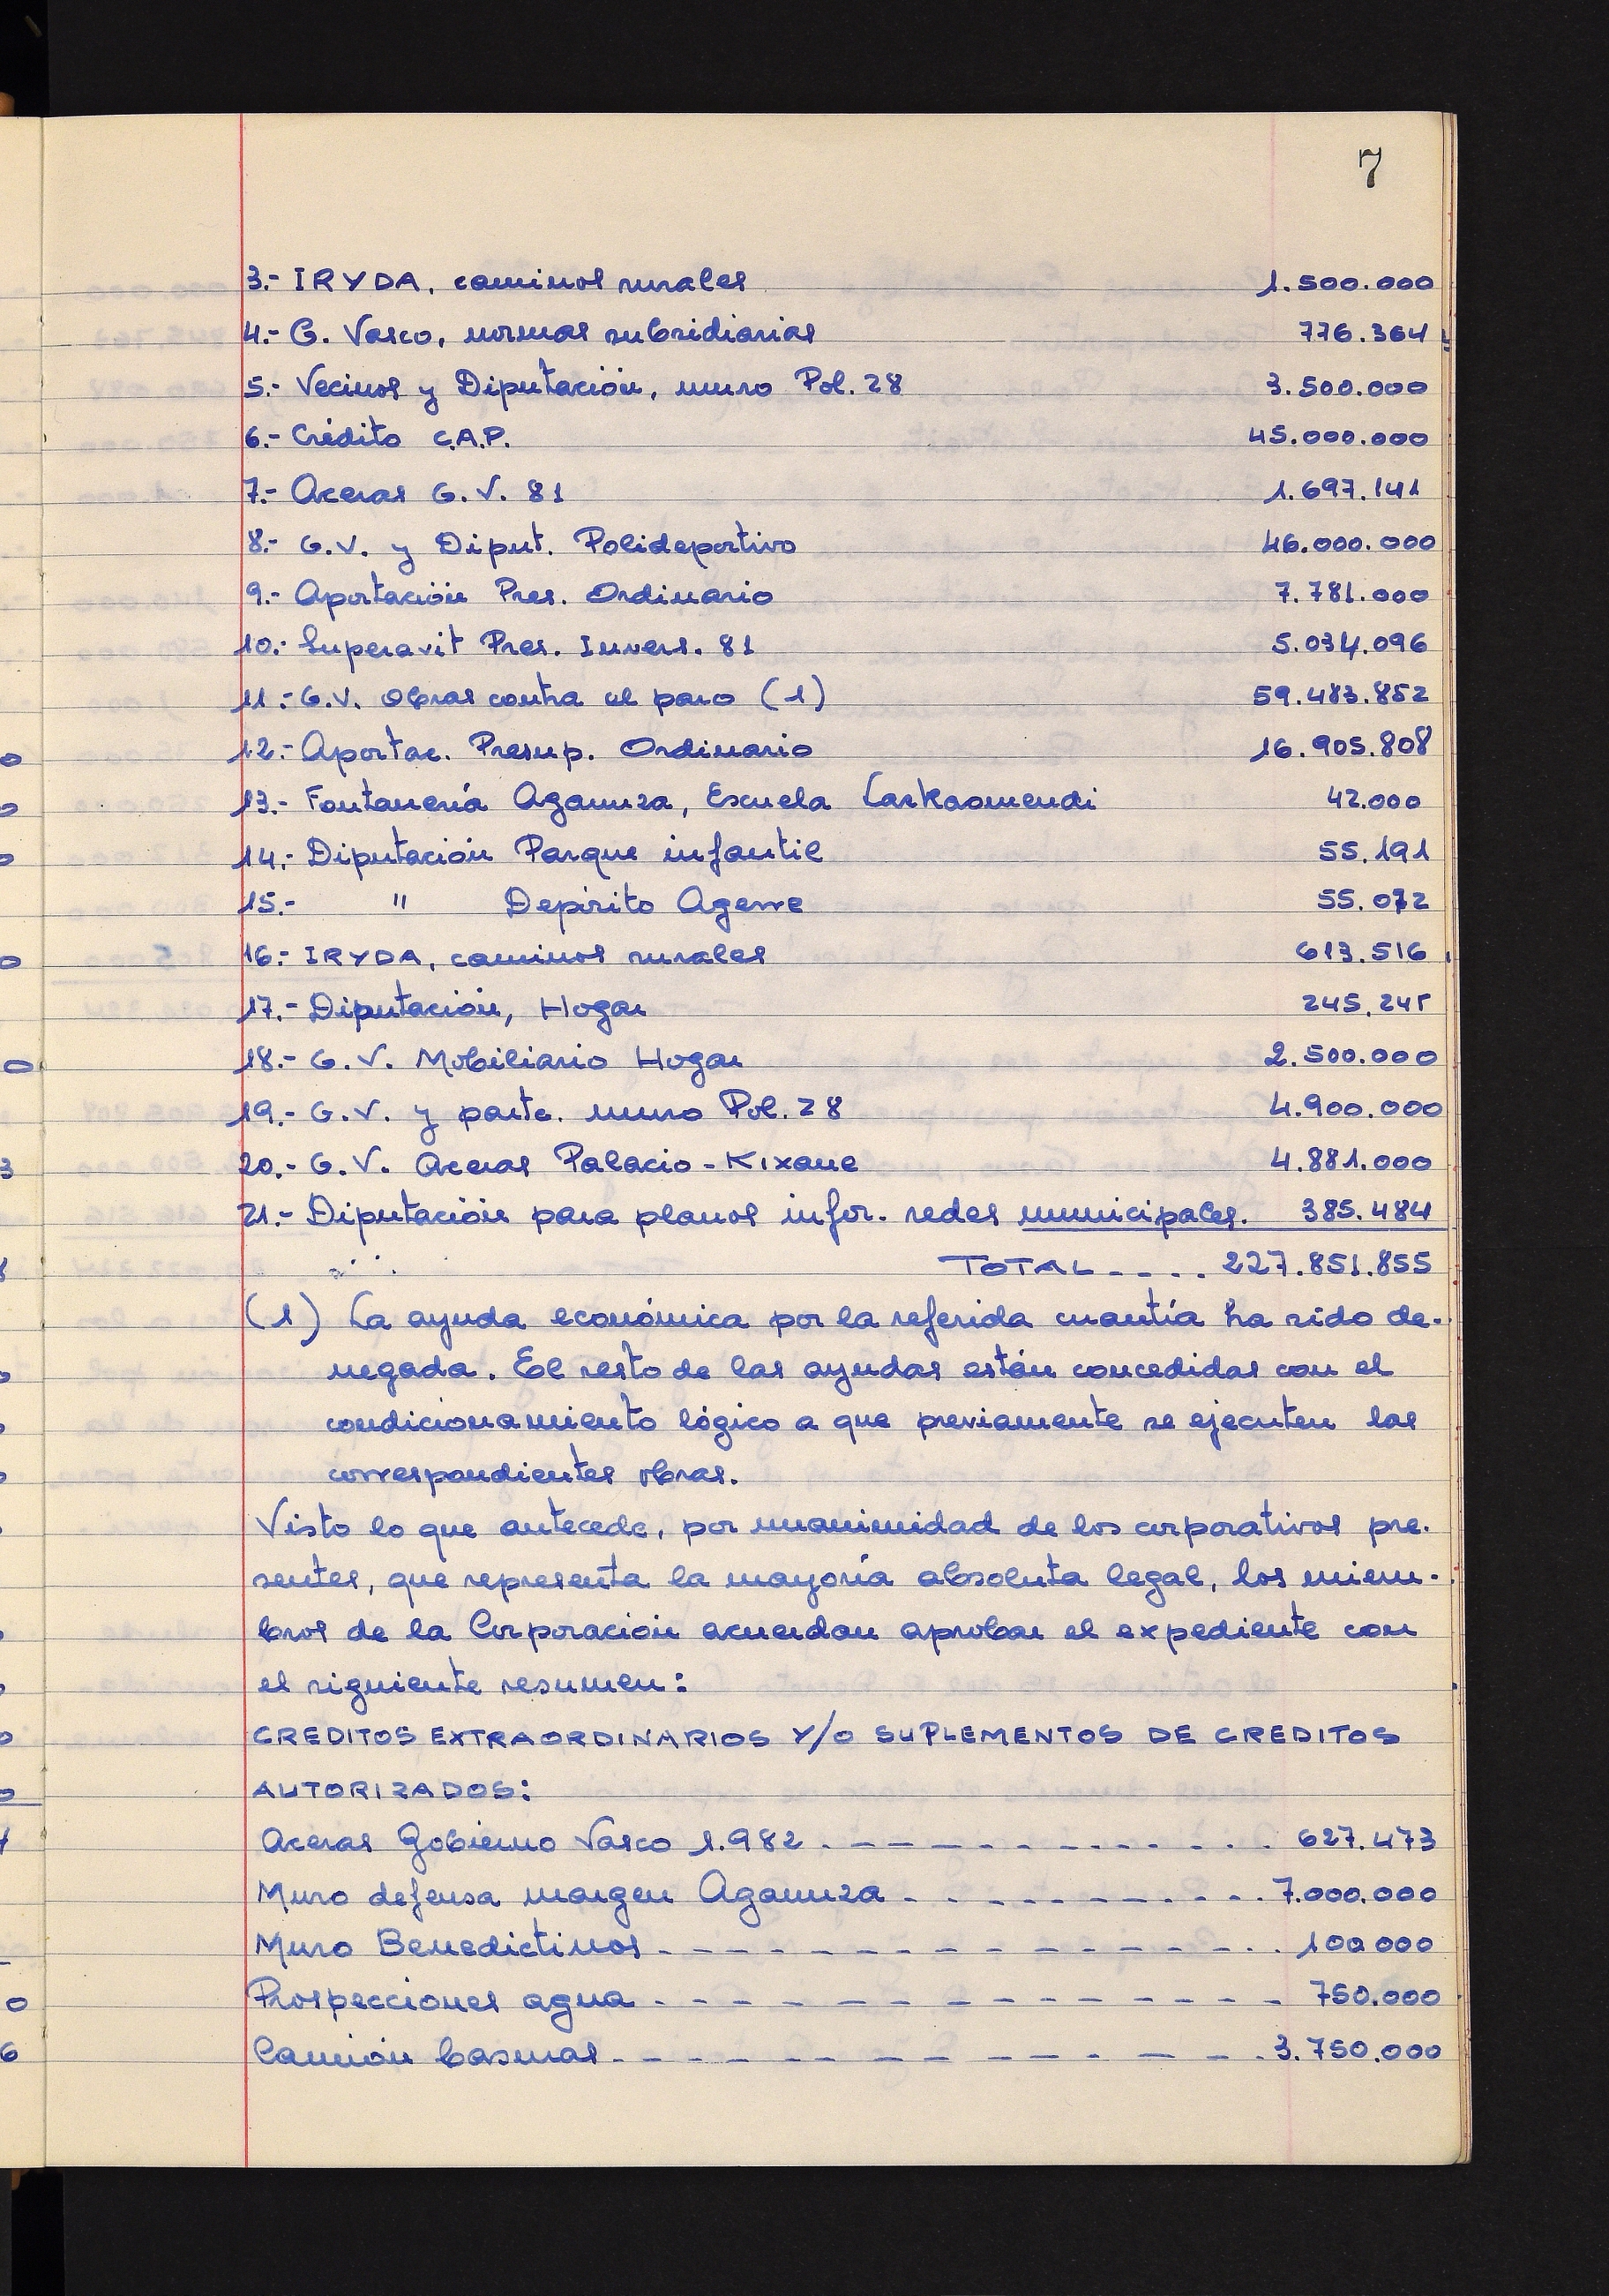 7
3.- IRYDA, caminos rurales 1.500.000
4.- G. Vasco, normas subsidiarias 776.364
5.- Vecinos y Diputación, muro Pol. 28 3.500.000
6.- Crédito C.A.P. 45.000.000
7.- Aceras G.V. 81 1.697.141
8.- G.V. y Diput. Polideportivo 46.000.000
9.- Aportación Pres. Ordinario 7.781.000
10.- Superavit Pres. Invers. 81 5.034.096
11.- G.V. Obras contra el paro (1) 59.483.852
12.- Aportac. Presup. Ordinario 16.905.808
13.- Fontanería Agaunza, Escuela Larkaomendi 42.000
14.- Diputación Parque infantil 55.191
15.- " Depósito Agerre 55.072
16.- IRYDA, caminos rurales 613.516
17.- Diputación, Hogar 245.245
18.- G.V. Mobiliario Hogar 2.500.000
19.- G.V. y parte. muro Pol. 28 4.900.000
20.- G.V. Aceras Palacio - Kixane 4.881.000
21.- Diputación para planos infor. redes municipales. 385.484
TOTAL ---- 227.851.855
(1) La ayuda económica por la referida cuantía ha sido de-
negada. El resto de las ayudas están concedidas con el
condicionamiento lógico a que previamente se ejecuten las
correspondientes obras.
Visto lo que antecede, por unanimidad de los corporativos pre-
sentes, que representa la mayoría absoluta legal, los miem-
bros de la Corporación acuerdan aprobar el expediente con
el siguiente resumen:
CREDITOS EXTRAORDINARIOS Y/O SUPLEMENTOS DE CREDITOS
AUTORIZADOS:
Aceras Gobierno Vasco 1.982 ------------ 627.473
Muro defensa margen Agaunza ----------- 7.000.000
Muro Benedictinos ---------------- 100.000
Prospecciones agua --------------- 750.000
Camión basuras ---------------- 3.750.000